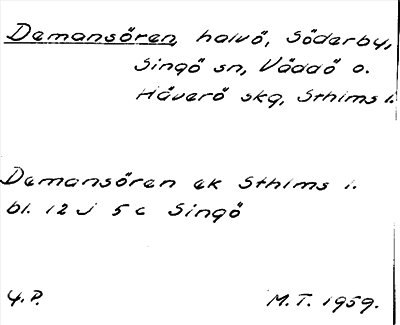 Demansören, halvö, Söderby,
Singö sn, Väddö o.
Häverö skg, Sthlms l.
Demansören ek Sthlms l.
bl. 12 J 5 c Singö
Y.P. M.T. 1959.